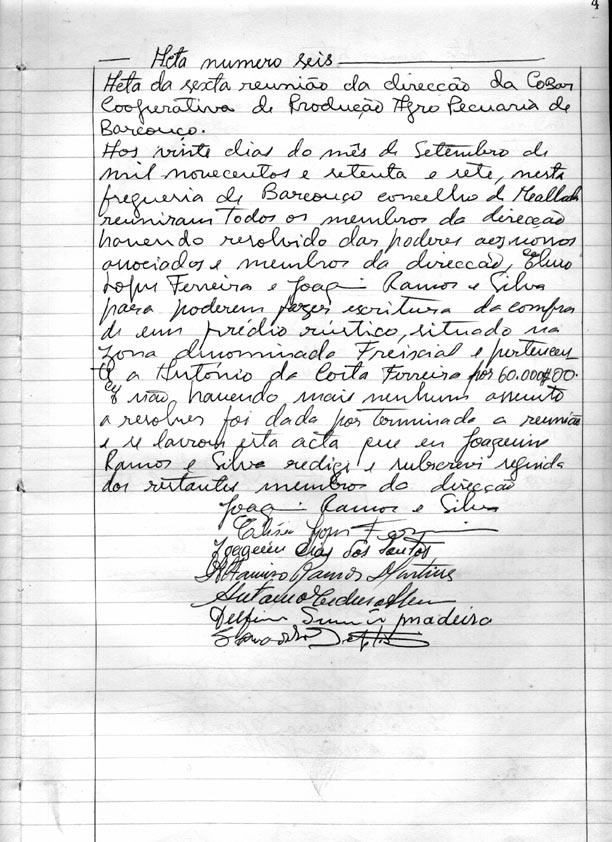 4
— Acta numero seis —
Acta da sexta reunião da direcção da CoBar
Cooperativa de Produção Agro Pecuaria de
Barcouço.
Aos vinte dias do mês de Setembro de
mil novecentos e setenta e sete, nesta
freguesia de Barcouço concelho de Mealhada
reuniram Todos os membros da direcção
havendo resolvido dar poderes aos novos
associados e membros da direcção,
Lopes Ferreira e Joaquim Ramos e Silva
para poderem fazer escritura da compra
de um prédio rústico, situado na
zona denominada Freixial e pertencen
te a António da Costa Ferreira por 60.000$00.
E não havendo mais nenhum assunto
a resolver foi dada por terminada a reunião
e se lavrou esta acta que eu Joaquim
Ramos e Silva redigi e subscrevi seguida
dos restantes membros da direcção
Joaquim Ramos e Silva
Lopes Ferreira
Joaquim Dias dos Santos
Ramos Martins
António
Delfim Madeira